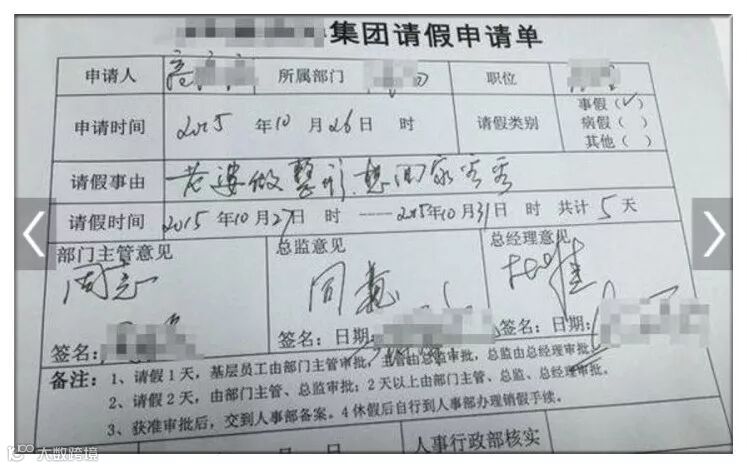 集团请假申请单
申请人 高 所属部门 职位
申请时间 2015年10月26日 时 请假类别 事假(✓)
病假( )
其他( )
请假事由 老婆做整形,想回家看看
请假时间 2015年10月27日 时 —— 2015年10月31日 时 共计5天
部门主管意见 总监意见 总经理意见
同意 同意
签名: 签名: 日期: 签名: 日期:
备注: 1、请假1天,基层员工由部门主管审批,主管由总监审批,总监由总经理审批。
2、请假2天,由部门主管、总监审批;2天以上由部门主管、总监、总经理审批。
3、获准审批后,交到人事部备案。4休假后自行到人事部办理销假手续。
人事行政部核实
大数跨境